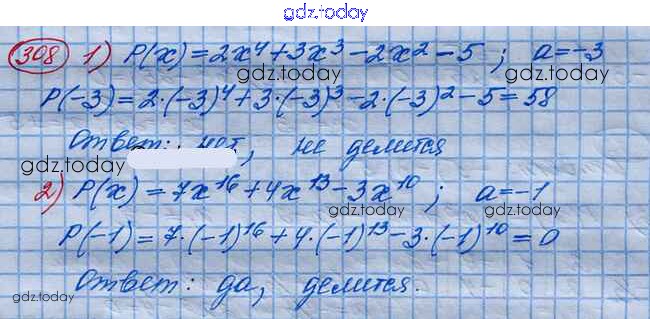 gdz.today
308 1) P(x) = 2x⁴ + 3x³ - 2x² - 5 ; a = -3
gdz.today gdz.today
P(-3) = 2·(-3)⁴ + 3·(-3)³ - 2·(-3)² - 5 = 58
Ответ: нет, не делится
gdz.today gdz.today
2) P(x) = 7x¹⁶ + 4x¹³ - 3x¹⁰ ; a = -1
gdz.today gdz.today
P(-1) = 7·(-1)¹⁶ + 4·(-1)¹³ - 3·(-1)¹⁰ = 0
Ответ: да, делится.
gdz.today gdz.today